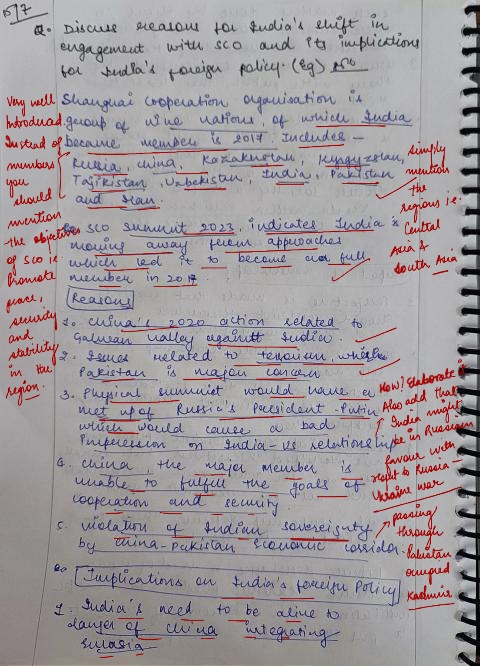 15/7
Q. Discuss reasons for India's shift in
engagement with SCO and its implications
for India's foreign policy. (Eg)
Shanghai cooperation organisation is
group of nine nations of which India
became member is 2017 Includes –
Russia, China, Kazakhstan, Kyrgyzstan,
Tajikistan, Uzbekistan, India, Pakistan
and Iran.
SCO summit 2023, indicates India's
moving away from approaches
which led it to become and full
member in 2017.
Reasons
1. China's 2020 action related to
Galwan valley against India.
2. Issues related to terrorism, which
Pakistan is major concern
3. Physical summit would have a
met up of Russia's President - Putin
which would cause a bad
impression on India-US relationship
4. China, the major member is
unable to fulfill the goals of
cooperation and security
5. violation of Indian sovereignty
by China-Pakistan Economic corridor.
Implications on India's foreign Policy
1. India's need to be alive to
danger of China integrating
Eurasia
Very well
Introduced
Instead of
members
you
should
mention
the objectives
of SCO i.e.
Promote
peace,
security
and
stability
in the
region.
simply
mention
the
regions i.e.
Central
Asia &
South Asia
How? Elaborate it
Also add that
India might
be in Russian
favour with
respect to Russia
Ukraine war
passing
through
Pakistan
occupied
Kashmir